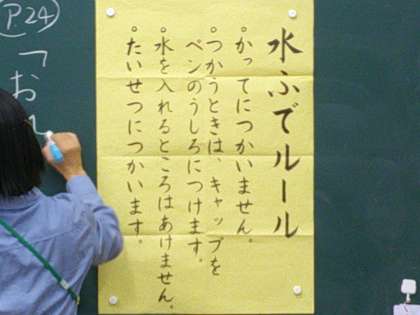 水ふでルール
。かってにつかいません。
。つかうときは、キャップを
ペンのうしろにつけます。
。水を入れるところはあけません。
。たいせつにつかいます。
P24
「お